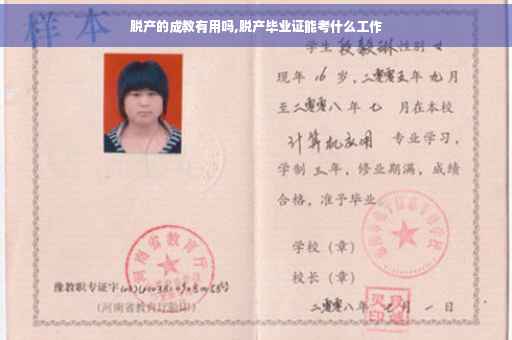 脱产的成教有用吗,脱产毕业证能考什么工作
样本
学生段毅琳性别女
现年16岁,二零零五年九月
至二零零八年七月在本校
计算机应用专业学习,
学制三年,修业期满,成绩
合格,准予毕业。
学校(章)
校长(章)
二零零八年七月一日
河南省教育厅
豫教职专证字
(河南省教育厅验印)